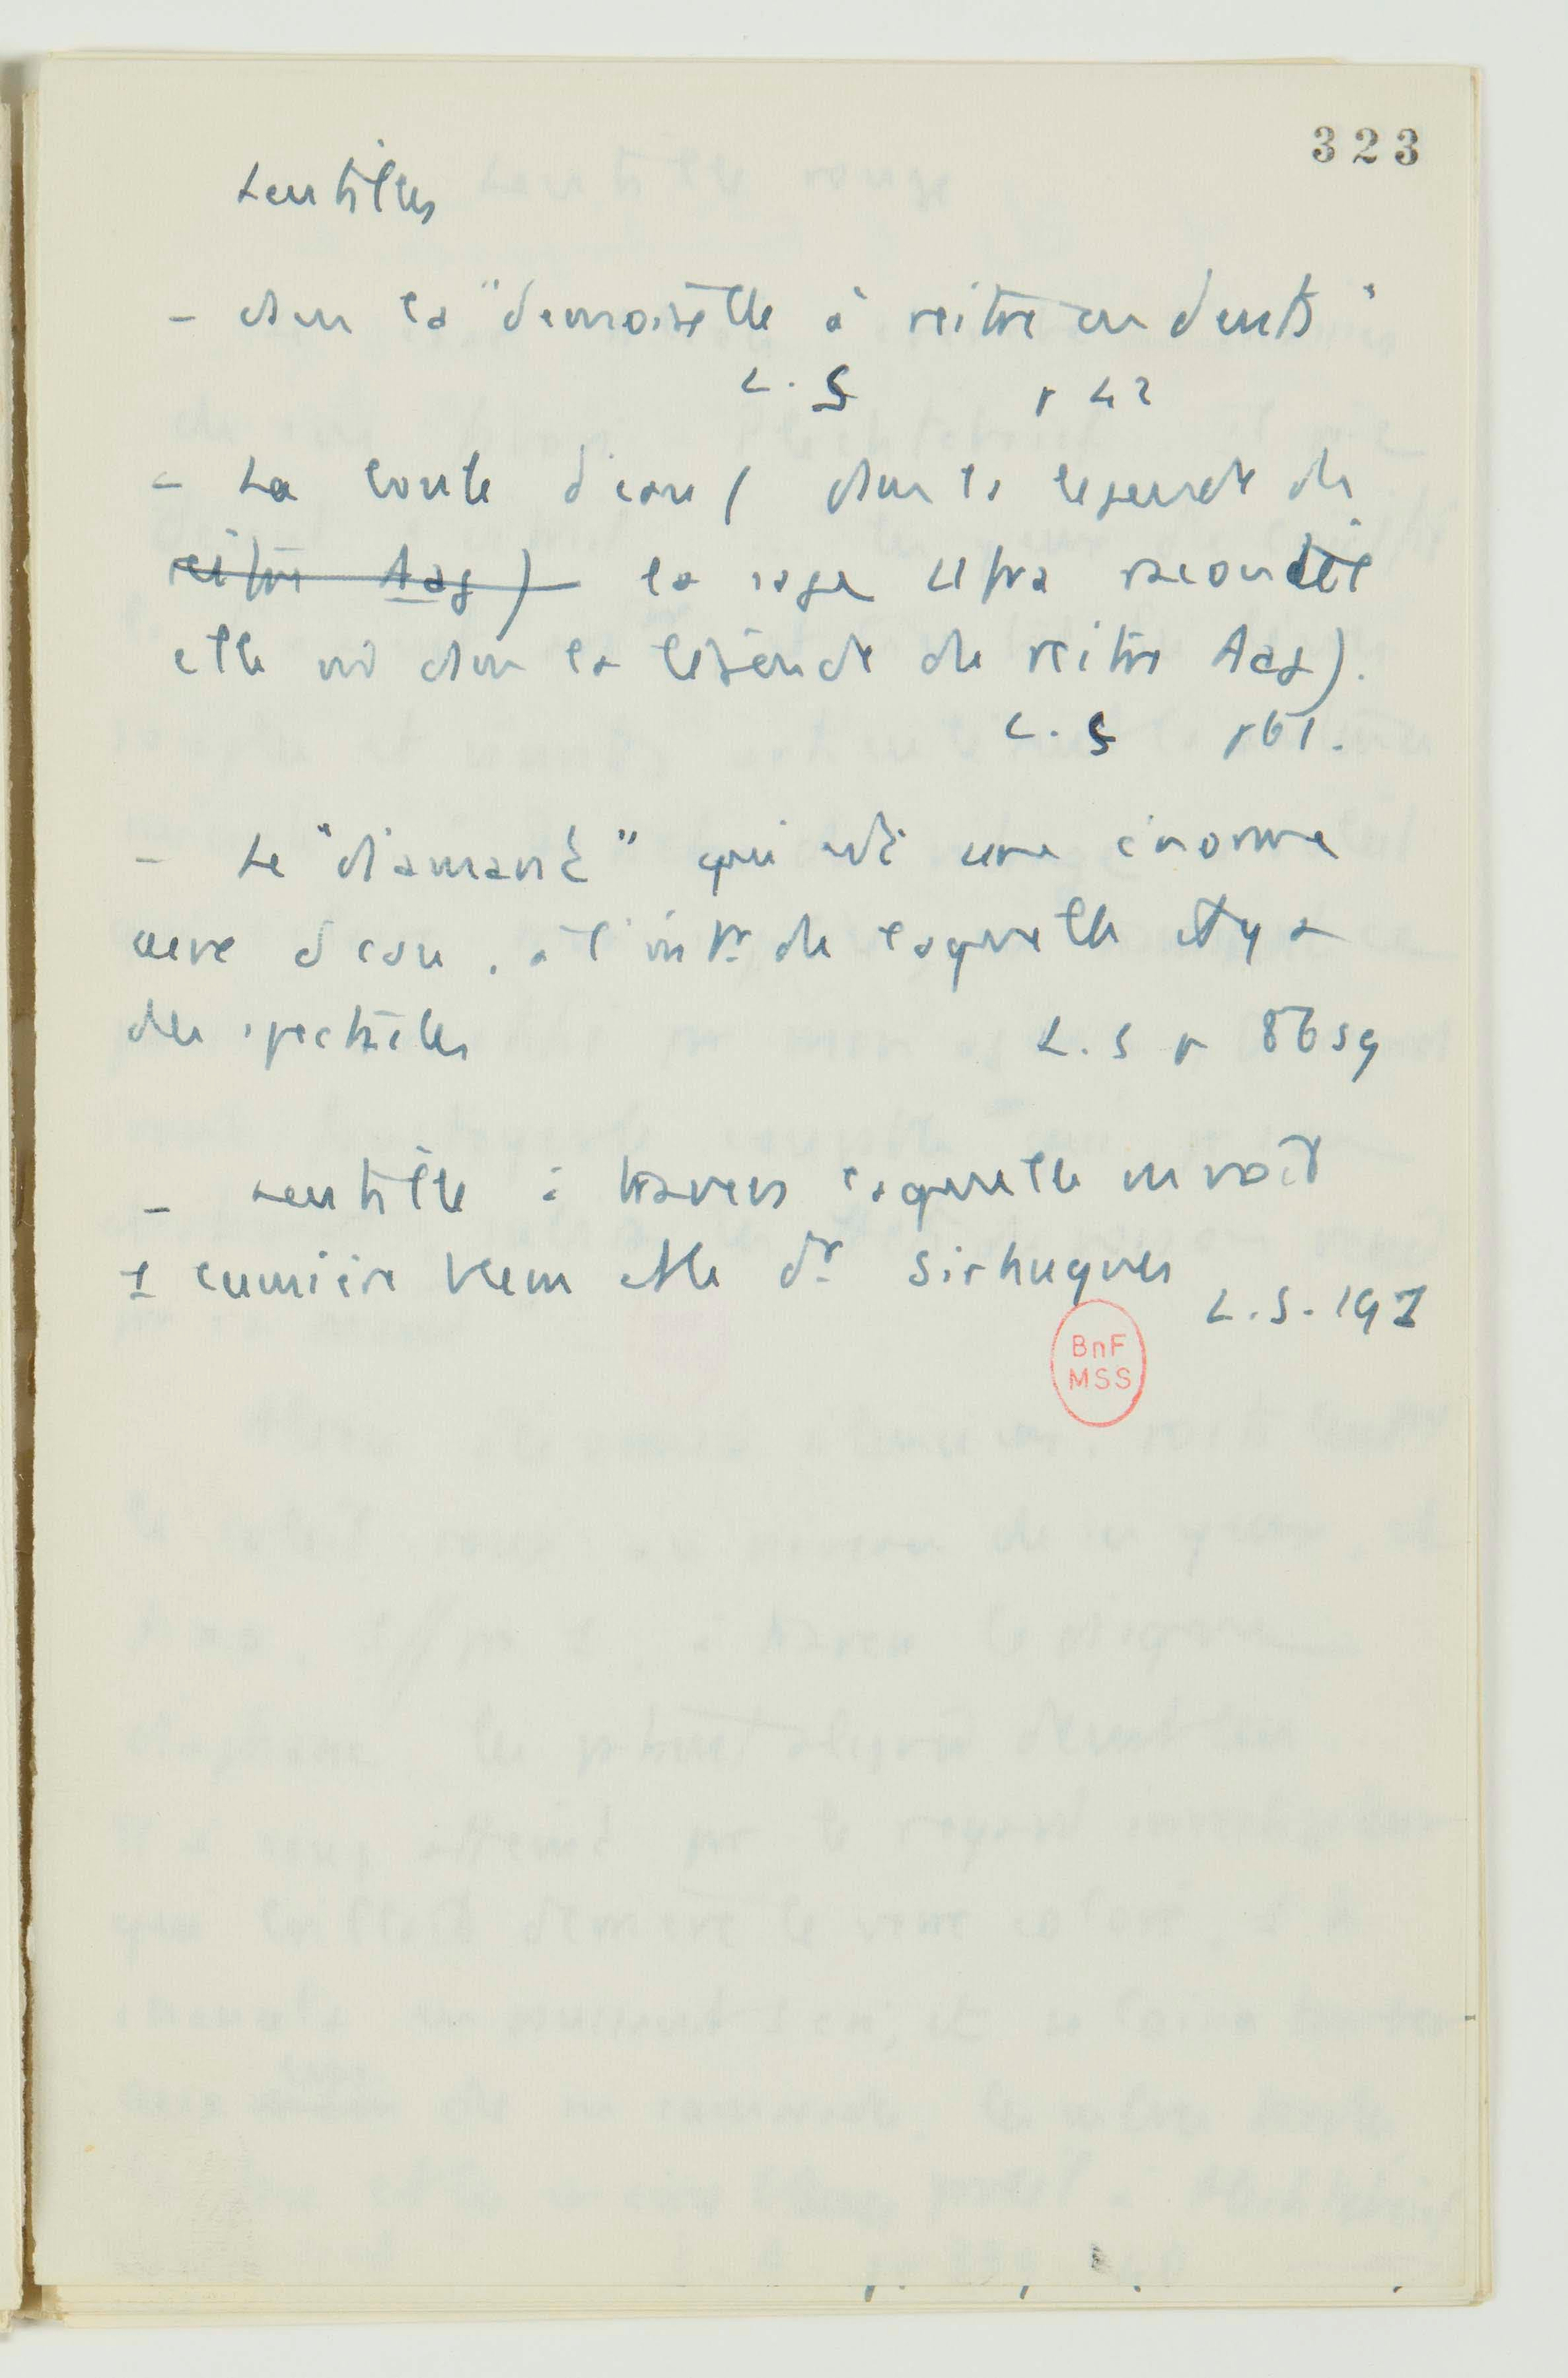 323
Lentilles
- dans la "demoiselle à reître en dents"
L. S p 42
- La boule d'eau ( dans la légende du
reître Aag) la sage Ulfra racontée
elle vit dans la légende du reître Aag).
L. S p 61.
- Le "diamant" qui est une énorme
cuve d'eau, à l'intr de laquelle il y a
des spectacles L. S p 86 sq
- Lentille à travers laquelle on voit
lumière bleue elle dr Sirhugues L. S. 197
BnF
MSS